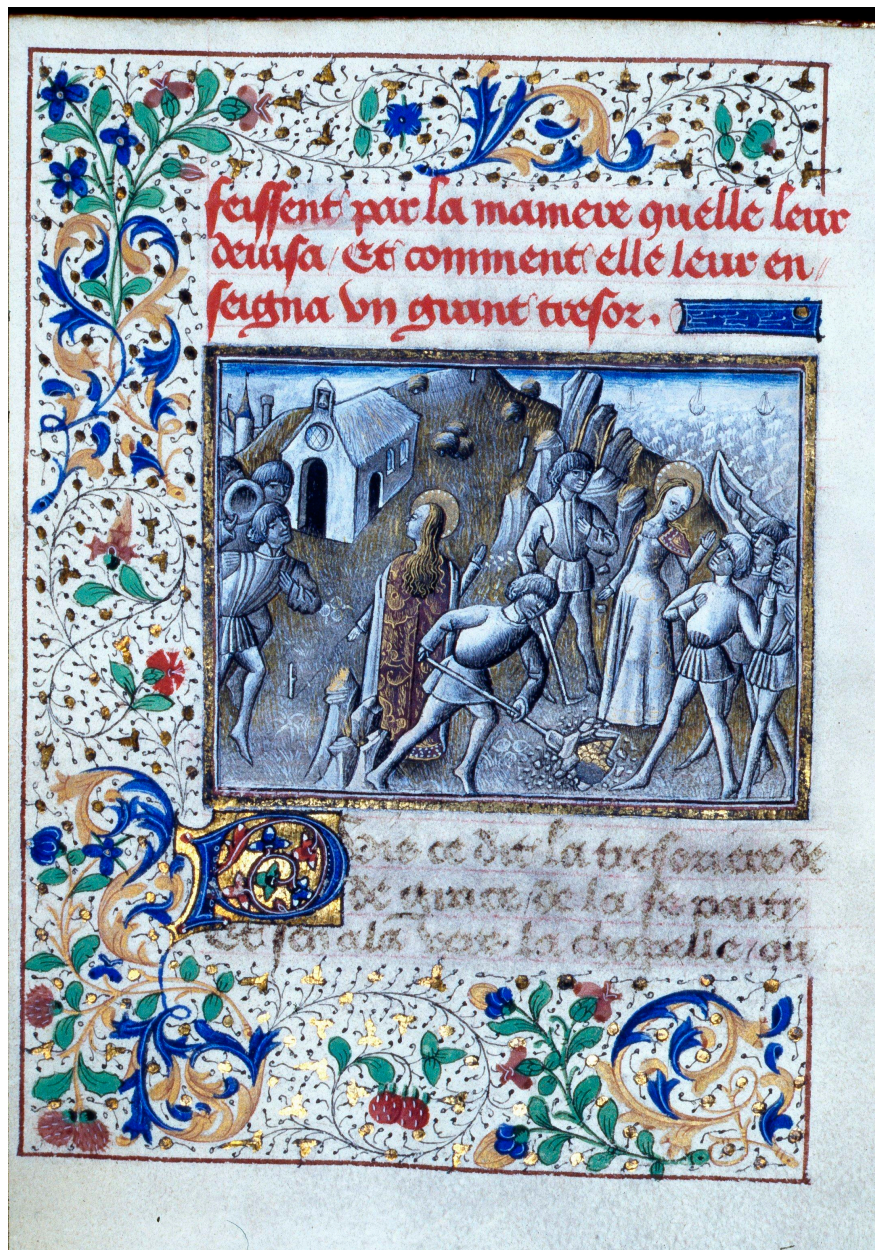 feissent par la maniere quelle leur
deuisa / Et comment elle leur en //
seigna vn grant tresor .
dre ce dit la tresoriere de
de grace / de la se party
Et sen ala vers la chapelle / ou